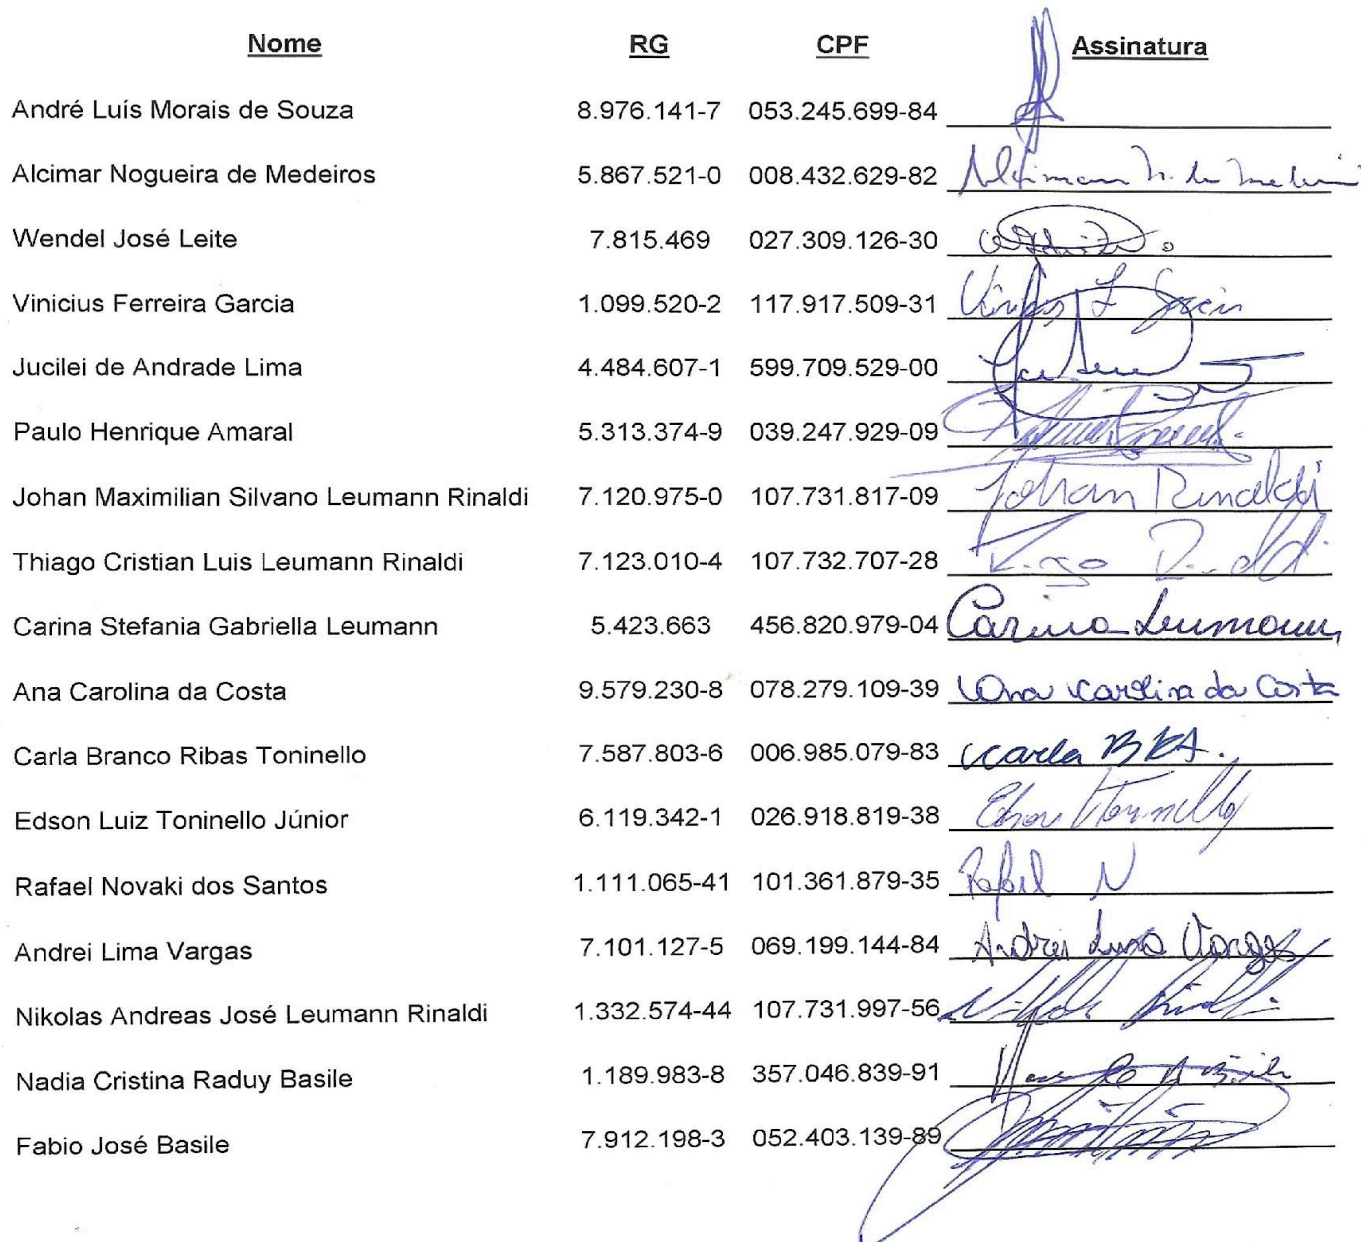 Nome RG CPF Assinatura
André Luís Morais de Souza 8.976.141-7 053.245.699-84
Alcimar Nogueira de Medeiros 5.867.521-0 008.432.629-82 Alcimar N. de Medeiros
Wendel José Leite 7.815.469 027.309.126-30
Vinicius Ferreira Garcia 1.099.520-2 117.917.509-31 Vinicius F Garcia
Jucilei de Andrade Lima 4.484.607-1 599.709.529-00
Paulo Henrique Amaral 5.313.374-9 039.247.929-09
Johan Maximilian Silvano Leumann Rinaldi 7.120.975-0 107.731.817-09 Johan Rinaldi
Thiago Cristian Luis Leumann Rinaldi 7.123.010-4 107.732.707-28
Carina Stefania Gabriella Leumann 5.423.663 456.820.979-04 Carina Leumann
Ana Carolina da Costa 9.579.230-8 078.279.109-39 Ana Carolina da Costa
Carla Branco Ribas Toninello 7.587.803-6 006.985.079-83 Carla
Edson Luiz Toninello Júnior 6.119.342-1 026.918.819-38 Edson Toninello
Rafael Novaki dos Santos 1.111.065-41 101.361.879-35 Rafael N
Andrei Lima Vargas 7.101.127-5 069.199.144-84 Andrei Lima Vargas
Nikolas Andreas José Leumann Rinaldi 1.332.574-44 107.731.997-56
Nadia Cristina Raduy Basile 1.189.983-8 357.046.839-91
Fabio José Basile 7.912.198-3 052.403.139-89